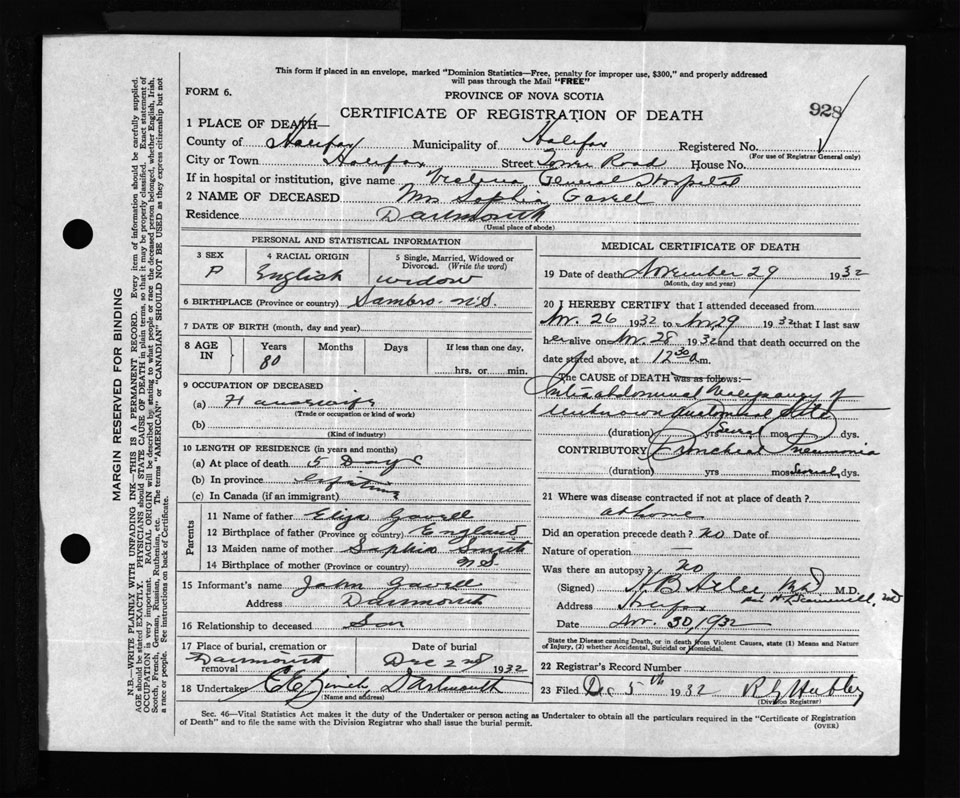 This form if placed in an envelope, marked "Dominion Statistics—Free, penalty for improper use, $300," and properly addressed
will pass through the Mail "FREE"
FORM 6.
PROVINCE OF NOVA SCOTIA
928
CERTIFICATE OF REGISTRATION OF DEATH
1 PLACE OF DEATH—
County of Halifax Municipality of Halifax Registered No.
(For use of Registrar General only)
City or Town Halifax Street Tower Road House No.
If in hospital or institution, give name Victoria General Hospital
2 NAME OF DECEASED Mrs Sophia Gavell
Residence Dartmouth
(Usual place of abode)
PERSONAL AND STATISTICAL INFORMATION
3 SEX 4 RACIAL ORIGIN 5 Single, Married, Widowed or
Divorced. (Write the word)
F English widow
6 BIRTHPLACE (Province or country) Sambro N.S.
7 DATE OF BIRTH (month, day and year)
8 AGE IN Years Months Days If less than one day,
80 hrs. or min.
9 OCCUPATION OF DECEASED
(a) Housewife
(Trade or occupation or kind of work)
(b)
(Kind of industry)
10 LENGTH OF RESIDENCE (in years and months)
(a) At place of death 5 Days
(b) In province Lifetime
(c) In Canada (if an immigrant)
Parents
11 Name of father Eliza Gavell
12 Birthplace of father (Province or country) England
13 Maiden name of mother Sophia Smith
14 Birthplace of mother (Province or country) N.S.
15 Informant's name John Gavell
Address Dartmouth
16 Relationship to deceased Son
17 Place of burial, cremation or Date of burial
Dartmouth
removal Dec 2nd 1932
18 Undertaker Dartmouth
(Name and address)
MEDICAL CERTIFICATE OF DEATH
19 Date of death November 29 1932
(Month, day and year)
20 I HEREBY CERTIFY that I attended deceased from
Nov. 26 1932 to Nov 29 1932 that I last saw
her alive on Nov. 28 1932 and that death occurred on the
date stated above, at 12 30 a.m.
The CAUSE of DEATH was as follows:—
Intraabdominal Malignancy of
unknown Site
(duration) yrs Several mos dys.
CONTRIBUTORY Bronchial Pneumonia
(duration) yrs mos Several dys.
21 Where was disease contracted if not at place of death?
at home
Did an operation precede death? No Date of
Nature of operation —
Was there an autopsy? No
(Signed) M.D.
Address Halifax
Date Nov. 30, 1932
State the Disease causing Death, or in death from Violent Causes, state (1) Means and Nature
of Injury, (2) whether Accidental, Suicidal or Homicidal.
22 Registrar's Record Number
23 Filed Dec 5th 1932 R G Hubley
(Division Registrar)
Sec. 46—Vital Statistics Act makes it the duty of the Undertaker or person acting as Undertaker to obtain all the particulars required in the "Certificate of Registration
of Death" and to file the same with the Division Registrar who shall issue the burial permit.
(OVER)
MARGIN RESERVED FOR BINDING
N.B.—WRITE PLAINLY WITH UNFADING INK—THIS IS A PERMANENT RECORD. Every item of information should be carefully supplied.
AGE should be stated EXACTLY. PHYSICIANS should STATE CAUSE OF DEATH in plain terms, so that it may be properly classified. Exact statement of
OCCUPATION is very important. RACIAL ORIGIN will be described by stating to what people or race the deceased person belonged, whether English, Irish,
Scotch, French, German, Russian, Ruthenian, etc. The terms "AMERICAN" or "CANADIAN" SHOULD NOT BE USED as they express citizenship but not
a race or people. See instructions on back of Certificate.